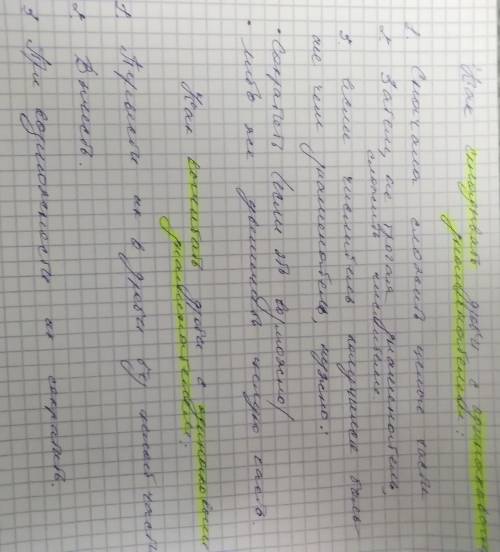 Как складывать дроби с одинаковыми
знаменателями:
1. Сначала сложить целые части
2. Затем, не трогая знаменатель,
сложить числители
3. Если числитель получился боль-
ше чем знаменатель, нужно:
• Сократить (если это возможно)
• либо же целую часть.
Как вычитать дроби с одинаковыми
знаменателями:
1. Перевести их в дроби без целой части
2. Вычесть.
3 При возможности их сократить.